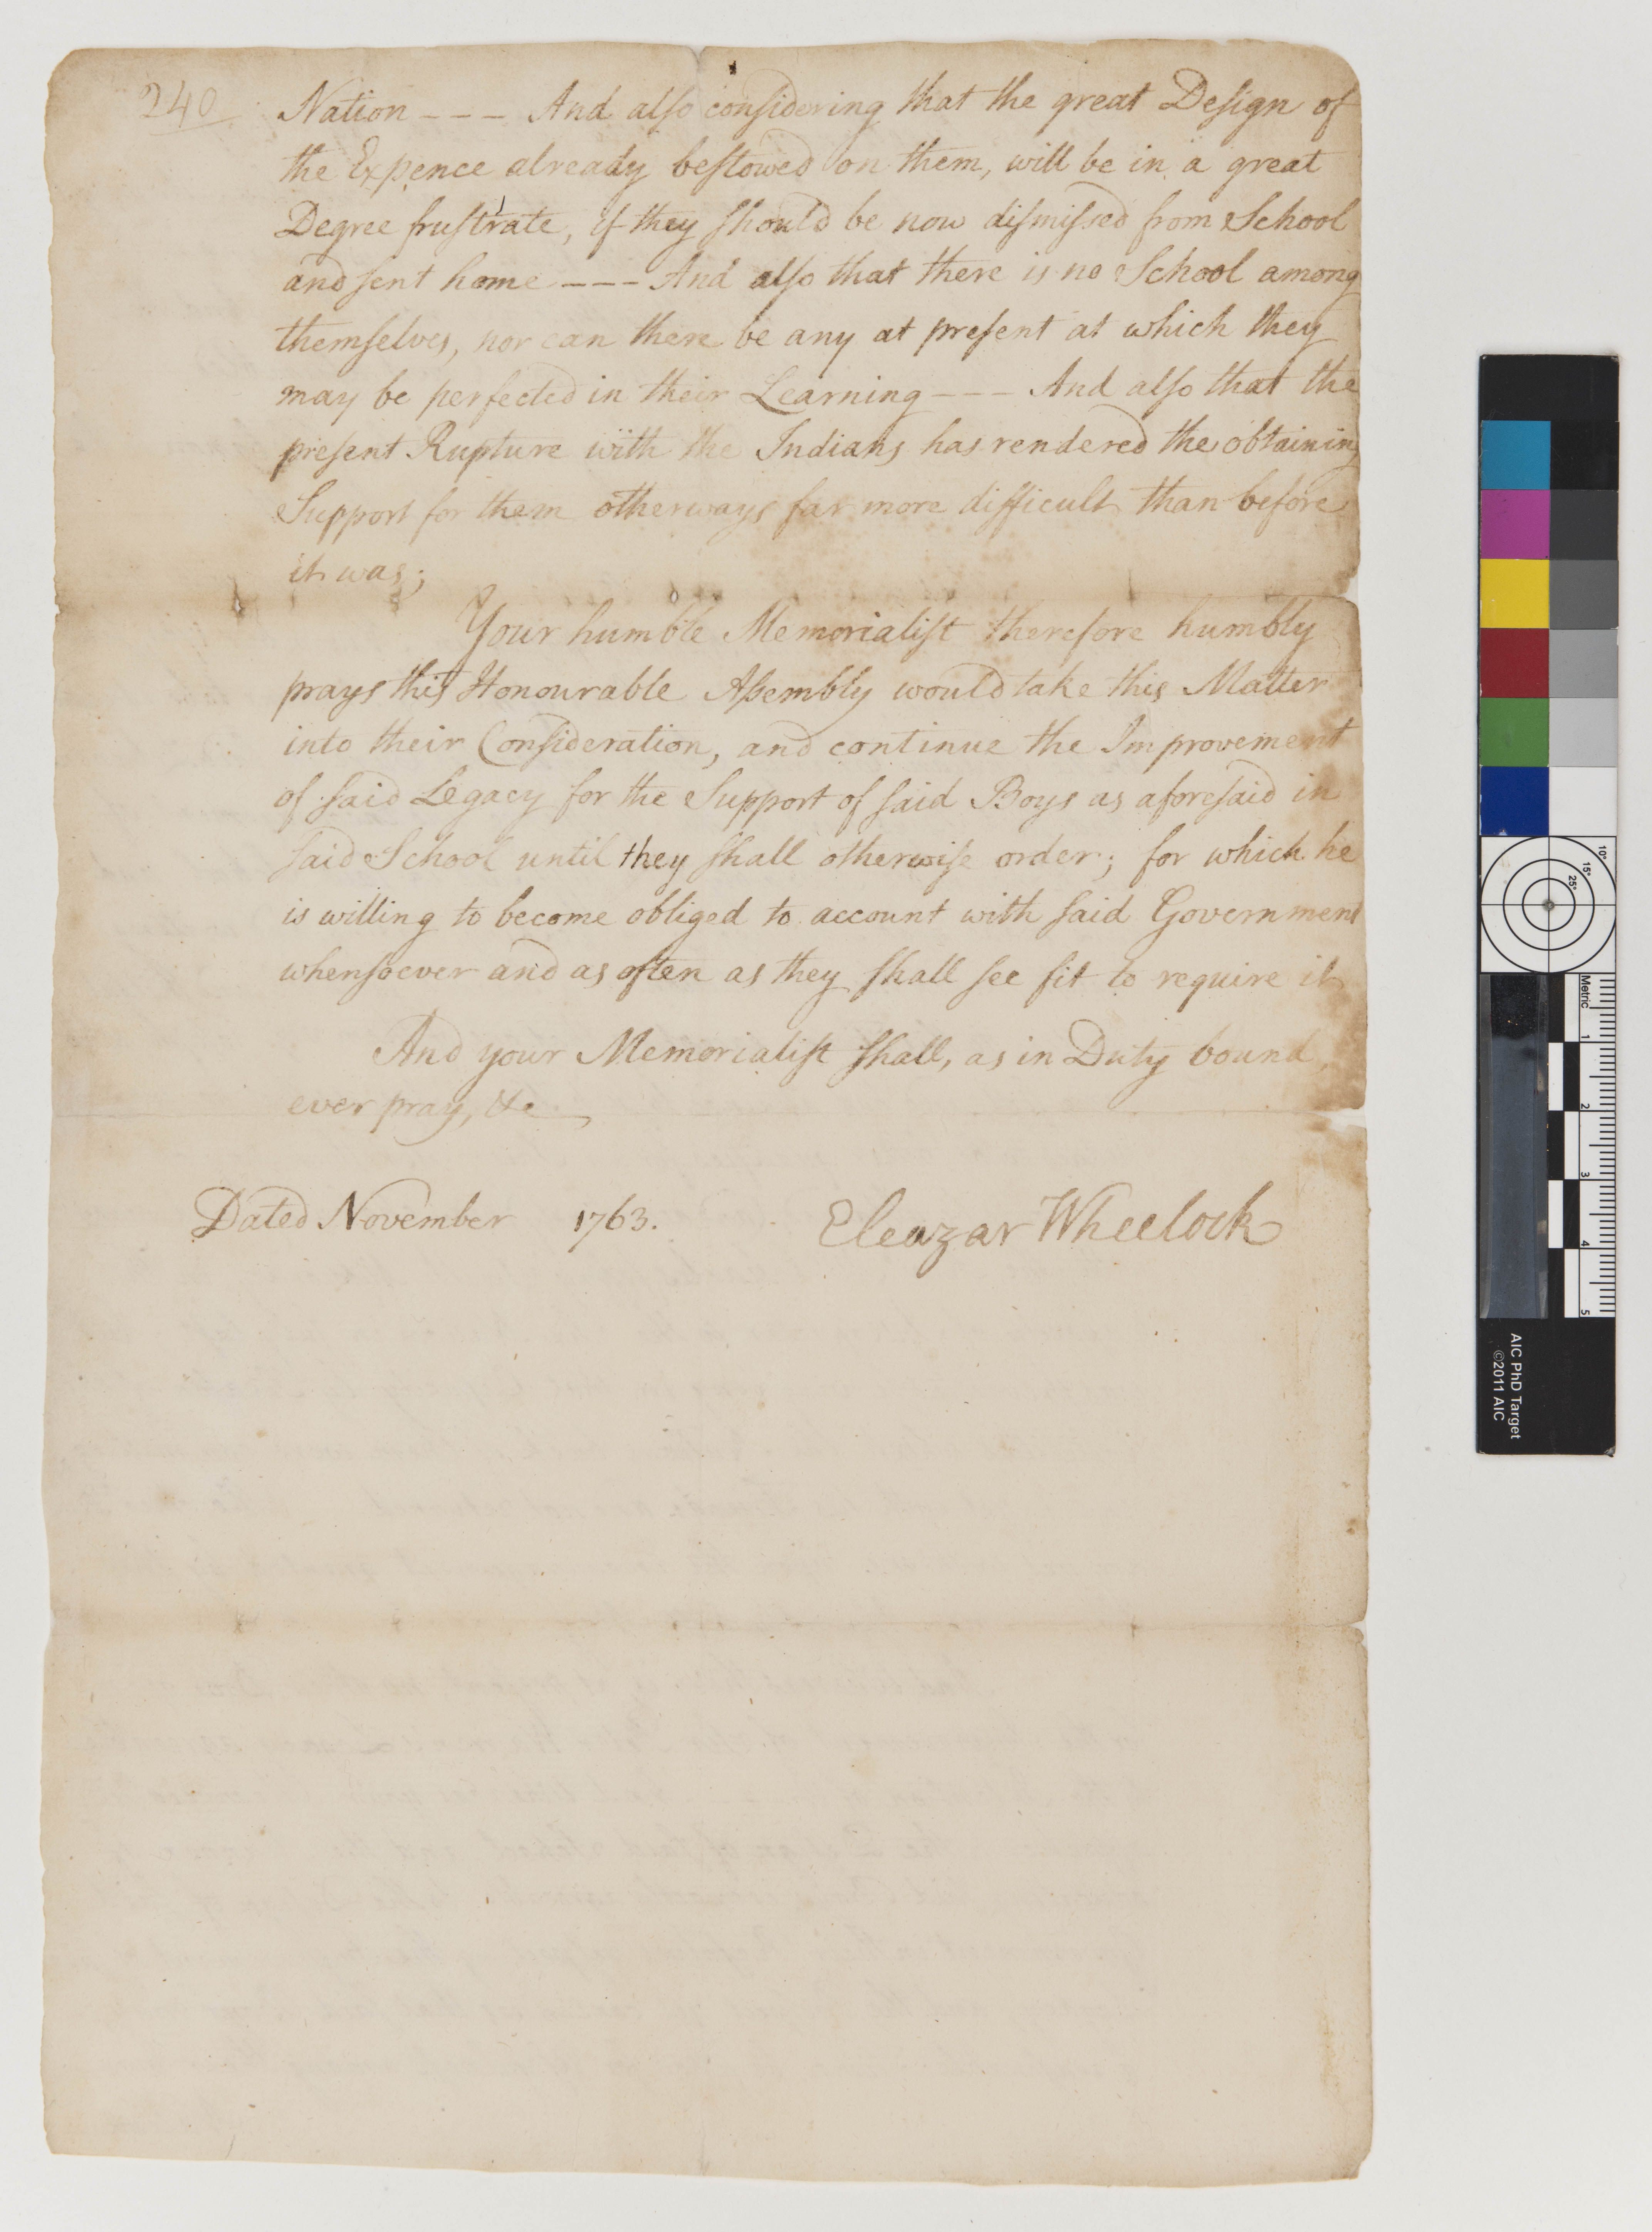 240
Nation --- And also considering that the great Design of
the Expence already bestowed on them, will be in a great
Degree frustrate, if they should be now dismissed from School
and sent home --- And also that there is no School among
themselves, nor can there be any at present at which they
may be perfected in their Learning --- And also that the
present Rupture with the Indians has rendered the obtaining
Support for them otherways far more difficult than before
it was;
Your humble Memorialist therefore humbly
prays this Honourable Assembly would take this Matter
into their Consideration, and continue the Improvement
of said Legacy for the Support of said Boys as aforesaid in
said School until they shall otherwise order; for which he
is willing to become obliged to account with said Government
whensoever and as often as they shall see fit to require it
And your Memorialist shall, as in Duty bound,
ever pray, &c
Dated November 1763. Eleazar Wheelock
10°
15°
25°
Metric
1
2
3
4
5
AIC PhD Target
©2011 AIC